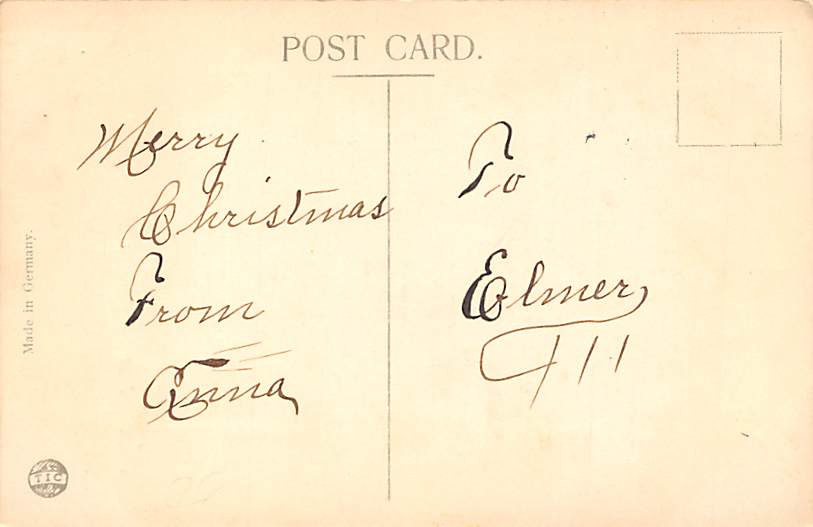 POST CARD.
Merry
Christmas
From
Anna
To
Elmer
Made in Germany.
TIC